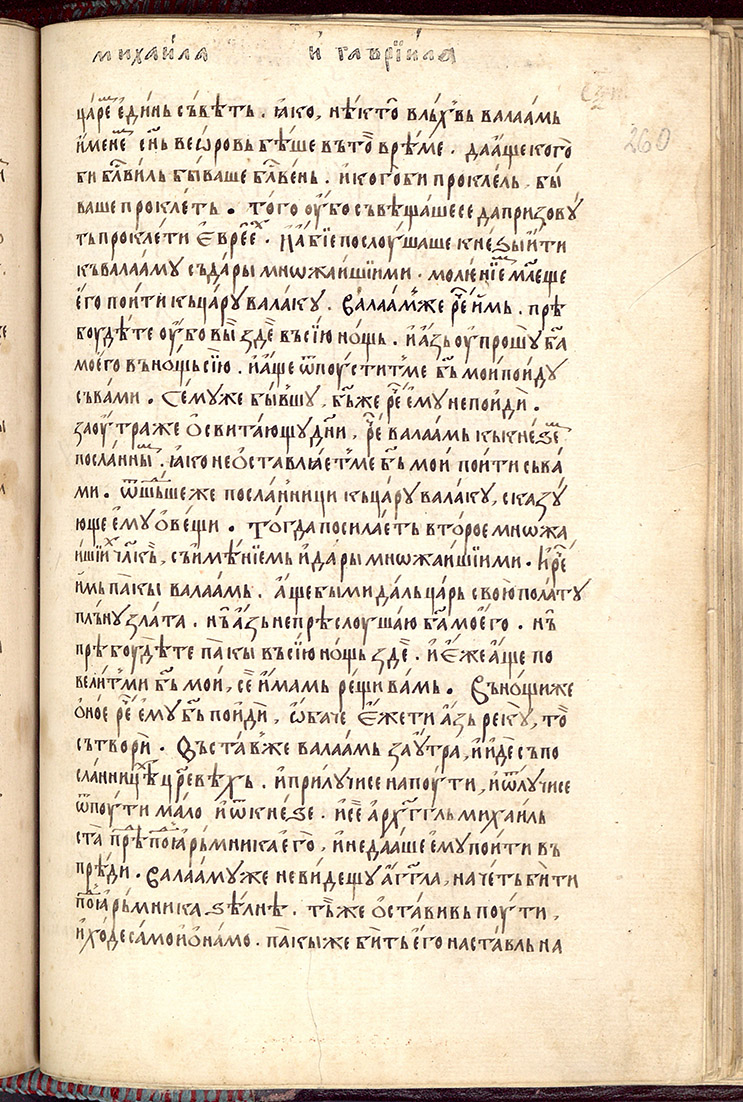 михаи́ла и҆ гаврїи́ла
260
ца́рїе є҆ди́нь съвѣ́ть . ꙗ҆ко , нѣ́кто влъ́хвь валаа́мь
и҆менемь сн҃ь веѡ́ровь бѣ́ше въто̀ врѣ́ме . даа҆́ще кого̀
би бл҃ви́ль бы́ваше бл҃ве́нь . и҆кого́би прокле́ль . бы́
ваше прокле́ть . того оу҆́бо съвѣща́шесе да призову́
ть прокле́ти є҆вре́є . и҆а҆́бїе послоу́шаше кне́ѕы и҆ти
къвалаа́му съда́ры мнѡжа́ишїими . моле́нїемь мл҃еще
є҆го пои́ти къца́ру вала́ку . валаа́мже рече и҆̀мь . прѣ
боудѣ́те оу҆́бо вы̀ здѐ въсїю̀ но́щь . и҆а҆́зь оу҆прошꙋ̀ ба
моего̀ въно́щь сїю̀ . и҆а҆́ще ѿпоу́стит ме бь҃ мои пои́ду
съва́ми . се́муже бы́вшу , бь҃же рече є҆му не пои́ди .
заоу҆́траже ѻ҆свита́ющу дн҃и , рече валаа́мь къкне́ѕемь
посла́нны . ꙗ҆ко не ѻ҆ставлꙗ́ет ме бь҃ моѝ пои́ти съва́
ми . ѿшьше́же посла́нници къца́ру вала́ку , сказꙋ́
юще є҆мꙋ ѻ҆ве́щи . тогда посила́еть второ́е мнѡжа
и҆шїих чл҃кь , съи҆мѣ́нїемь и҆да́ры мнѡжа́ишїими . и҆рече
и҆мь па́кы валаа́мь . а҆́ще бы ми да́ль ца́рь свою̀ пола́ту
пль́ну зла́та . нь а҆́зь не прѣслоу́шаю ба҃ мое́го . нь
прѣбоудѣ́те па́кы въсїю̀ но́щь здѐ . и҆ є҆́же а҆́ще по
вели́т ми бь҃ мои , сѐ и҆́мамь ре́щи ва́мь . въно́щиже
ѻ҆ное рече є҆му бь҃ пои́ди , ѻ҆ба́че є҆́же ти а҆́зь рекꙋ̀ , то̀
сътворѝ . въста́вже валаа́мь заоу́тра , и҆и҆де съпо
сла́нници цр҃евѣхь . и҆прилу́чисе на поу́ти , и҆ѿлу́чисе
ѿпоу́ти ма́ло и҆ѿкне́ѕе . и҆сѐ а҆рхгг҃ль михаи́ль
ста̀ прѣпоꙗ҆рьмника є҆го̀ , и҆недаа́ше є҆му пои́ти въ
прѣ́ди . валаа́муже неви́дещꙋ а҆гг҃ла , наче́ть би́ти
поꙗ҆рьмника ѕѣлнѣ̀ . тьже ѻ҆ста́вивь поу́ти ,
и҆хо́де са́мо и҆ѻ҆на́мо . па́кыже би́ть є҆го наста́вль на